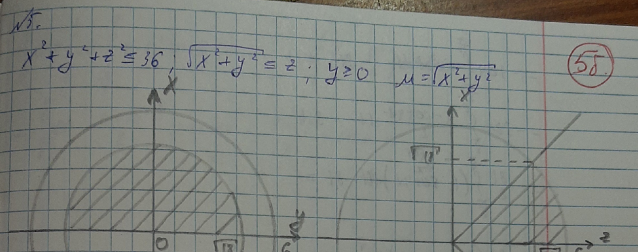 √5.
x² + y² + z² ≤ 36 ; √x² + y² ≤ z ; y ≥ 0 μ = √x² + y²
5б
x x
√18
z
0 √18 6